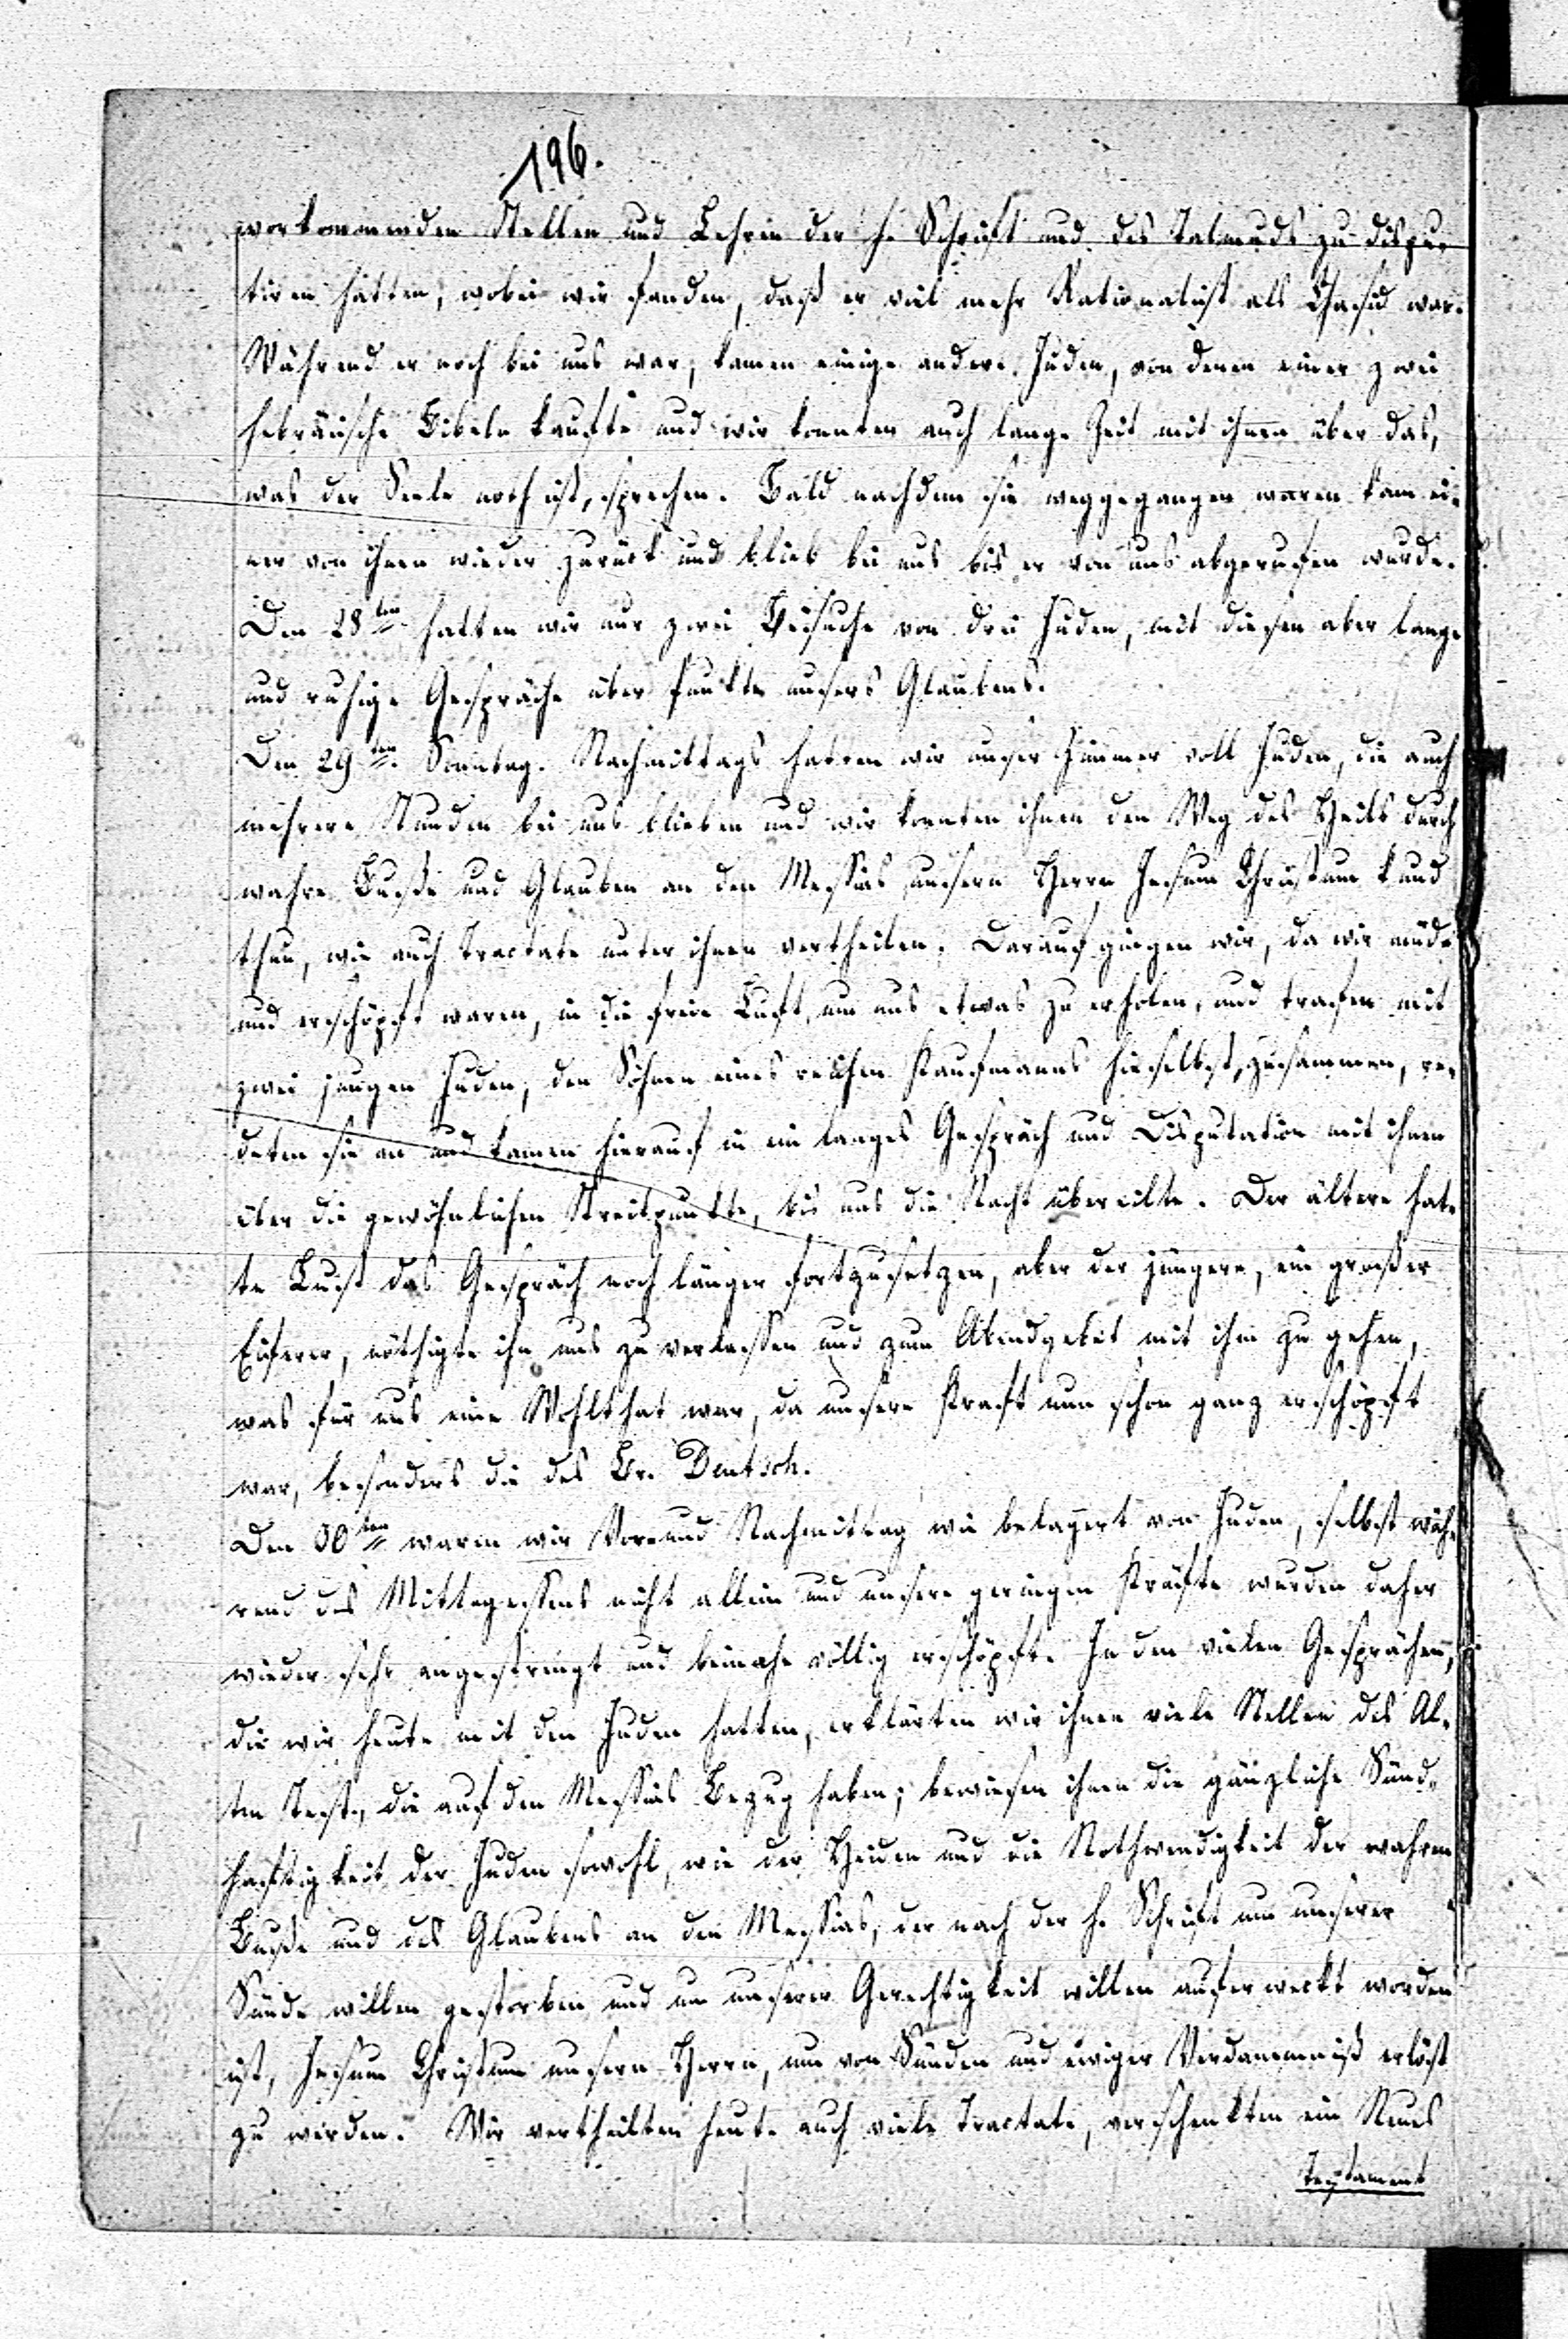 196.
vorkommenden Stellen und Lehren der h. Schrift und des Talmuds zu dispu-
tiren hatten, wobei wir fanden, daß er viel mehr Rationalist als Chasid war.
Während er noch bei uns war, kamen einige andere Juden, von denen einer zwei
hebräische Bibeln kaufte und wir konnten auch lange Zeit mit ihnen über das,
was der Seele noth ist, sprechen. Bald nachdem sie weggegangen waren kam ei-
ner von ihnen wieder zurück und blieb bei uns bis er von uns abgerufen wurde.
Den 28ten hatten wir nur zwei Besuche von drei Juden, mit diesen aber lange
und ruhige Gespräche über Punkte unsers Glaubens.
Den 29ten Sonntag. Nachmittags hatten wir unser Zimmer voll Juden, die auch
mehrere Stunden bei uns blieben und wir konnten ihnen den Weg des Heils durch
wahre Buße und Glauben an den Messias unsern Herrn Jesum Christum kund
thun, wie auch Tractate unter ihnen vertheilen. Darauf gingen wir, da wir müde
und erschöpft waren, in die freie Luft, um uns etwas zu erholen, und trafen mit
zwei jungen Juden, den Söhnen eines reichen Kaufmanns hieselbst, zusammen, re-
deten sie an und kamen hierauf in ein langes Gespräch und Disputation mit ihnen
über die gewöhnlichen Streitpunkte, bis uns die Nacht übereilte. Der ältere hat-
te Lust das Gespräch noch länger fortzusetzen, aber der jüngere, ein großer
Eiferer, nöthigte ihn uns zu verlassen und zum Abendgebet mit ihm zu gehen,
was für uns eine Wohlthat war, da unsere Kraft nun schon ganz erschöpft
war, besonders die des Br. Deutsch.
Den 30ten waren wir Vor- und Nachmittag wie belagert von Juden, selbst wäh-
rend des Mittagessens nicht allein und unsere geringen Kräfte wurden daher
wieder sehr angestrengt und beinahe völlig erschöpft. In den vielen Gesprächen,
die wir heute mit den Juden hatten, erklärten wir ihnen viele Stellen des Al-
ten Test., die auf den Messias Bezug haben; bewiesen ihnen die gänzliche Sünd-
haftigkeit der Juden sowohl, wie der Heiden und die Nothwendigkeit der wahren
Buße und des Glaubens an den Messias, der nach der h. Schrift um unserer
Sünde willen gestorben und um unserer Gerechtigkeit willen auferweckt worden
ist, Jesum Christum unsern Herrn, um von Sünden und ewiger Verdammniß erlöst
zu werden. Wir vertheilten heute auch viele Tractate, verschenkten ein Neues
Testament